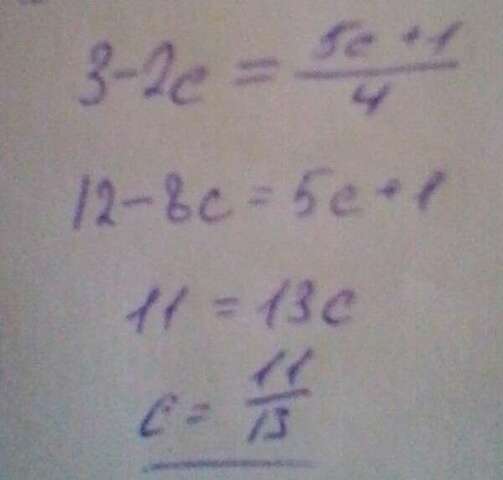 3-2c = (5c+1)/4
12-8c = 5c+1
11 = 13c
c = 11/13